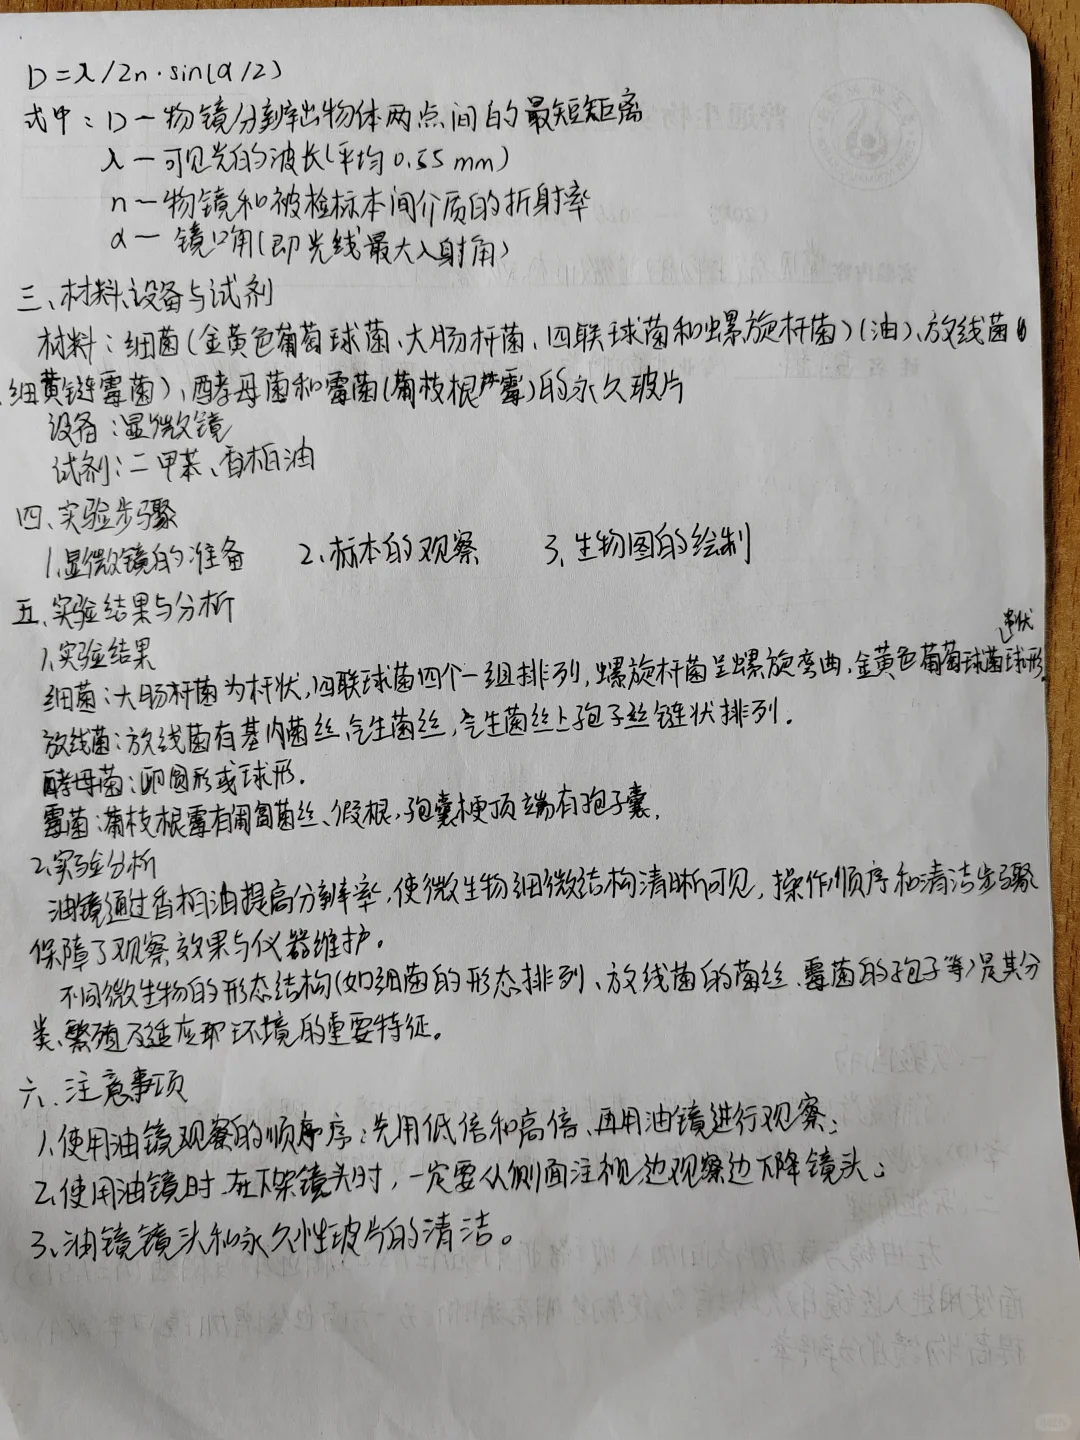 D=λ/2n·sin(α/2)
式中：D—物镜分辨出物体两点间的最短距离
λ—可见光的波长(平均0.55mm)
n—物镜和被检标本间介质的折射率
α—镜口角(即光线最大入射角)
三、材料、设备与试剂
材料：细菌(金黄色葡萄球菌、大肠杆菌、四联球菌和螺旋杆菌)(油)、放线菌(
细黄链霉菌)、酵母菌和霉菌(葡枝根霉)的永久玻片
设备：显微镜
试剂：二甲苯、香柏油
四、实验步骤
1.显微镜的准备 2.标本的观察 3.生物图的绘制
五、实验结果与分析
1.实验结果
串状
细菌：大肠杆菌为杆状，四联球菌四个一组排列，螺旋杆菌呈螺旋弯曲，金黄色葡萄球菌球形。
放线菌：放线菌有基内菌丝、气生菌丝，气生菌丝上孢子丝链状排列。
酵母菌：卵圆形或球形。
霉菌：葡枝根霉有匍匐菌丝、假根，孢囊梗顶端有孢子囊。
2.实验分析
油镜通过香柏油提高分辨率，使微生物细微结构清晰可见，操作顺序和清洁步骤
保障了观察效果与仪器维护。
不同微生物的形态结构(如细菌的形态排列、放线菌的菌丝、霉菌的孢子等)是其分
类、繁殖及适应环境的重要特征。
六、注意事项
1.使用油镜观察的顺序：先用低倍和高倍、再用油镜进行观察；
2.使用油镜时，在下架镜头时，一定要从侧面注视，边观察边下降镜头；
3.油镜镜头和永久性玻片的清洁。